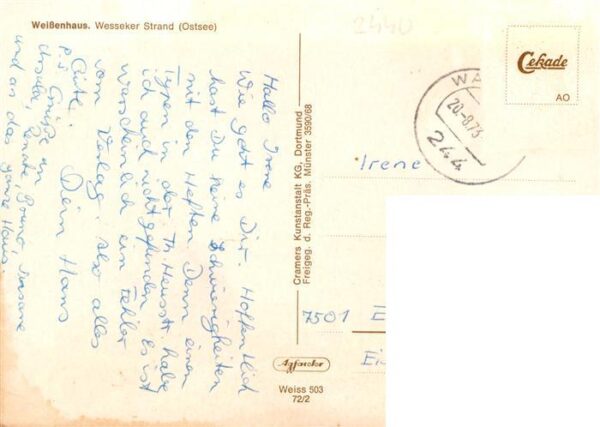 Weißenhaus. Wesseker Strand (Ostsee)
Hallo Irene
Wie geht es Dir. Hoffentlich
hast Du keine Schwierigkeiten
mit den Heften. Denn einen
in der Th. Heusstr. habe
ich auch nicht gefunden Es ist
warscheinlich ein Fehler
vom Verlag. Also alles
Gute. Dein Hans
P.S Grüße an
Renate, Bruno, Susane
und an das ganze Haus.
Cramers Kunstanstalt KG, Dortmund
Freigeg. d. Reg.-Präs. Münster 3590/68
2440
Cekade
AO
WA
20-8.73
244
Irene
7501 E
Ei
Agfacolor
Weiss 503
72/2